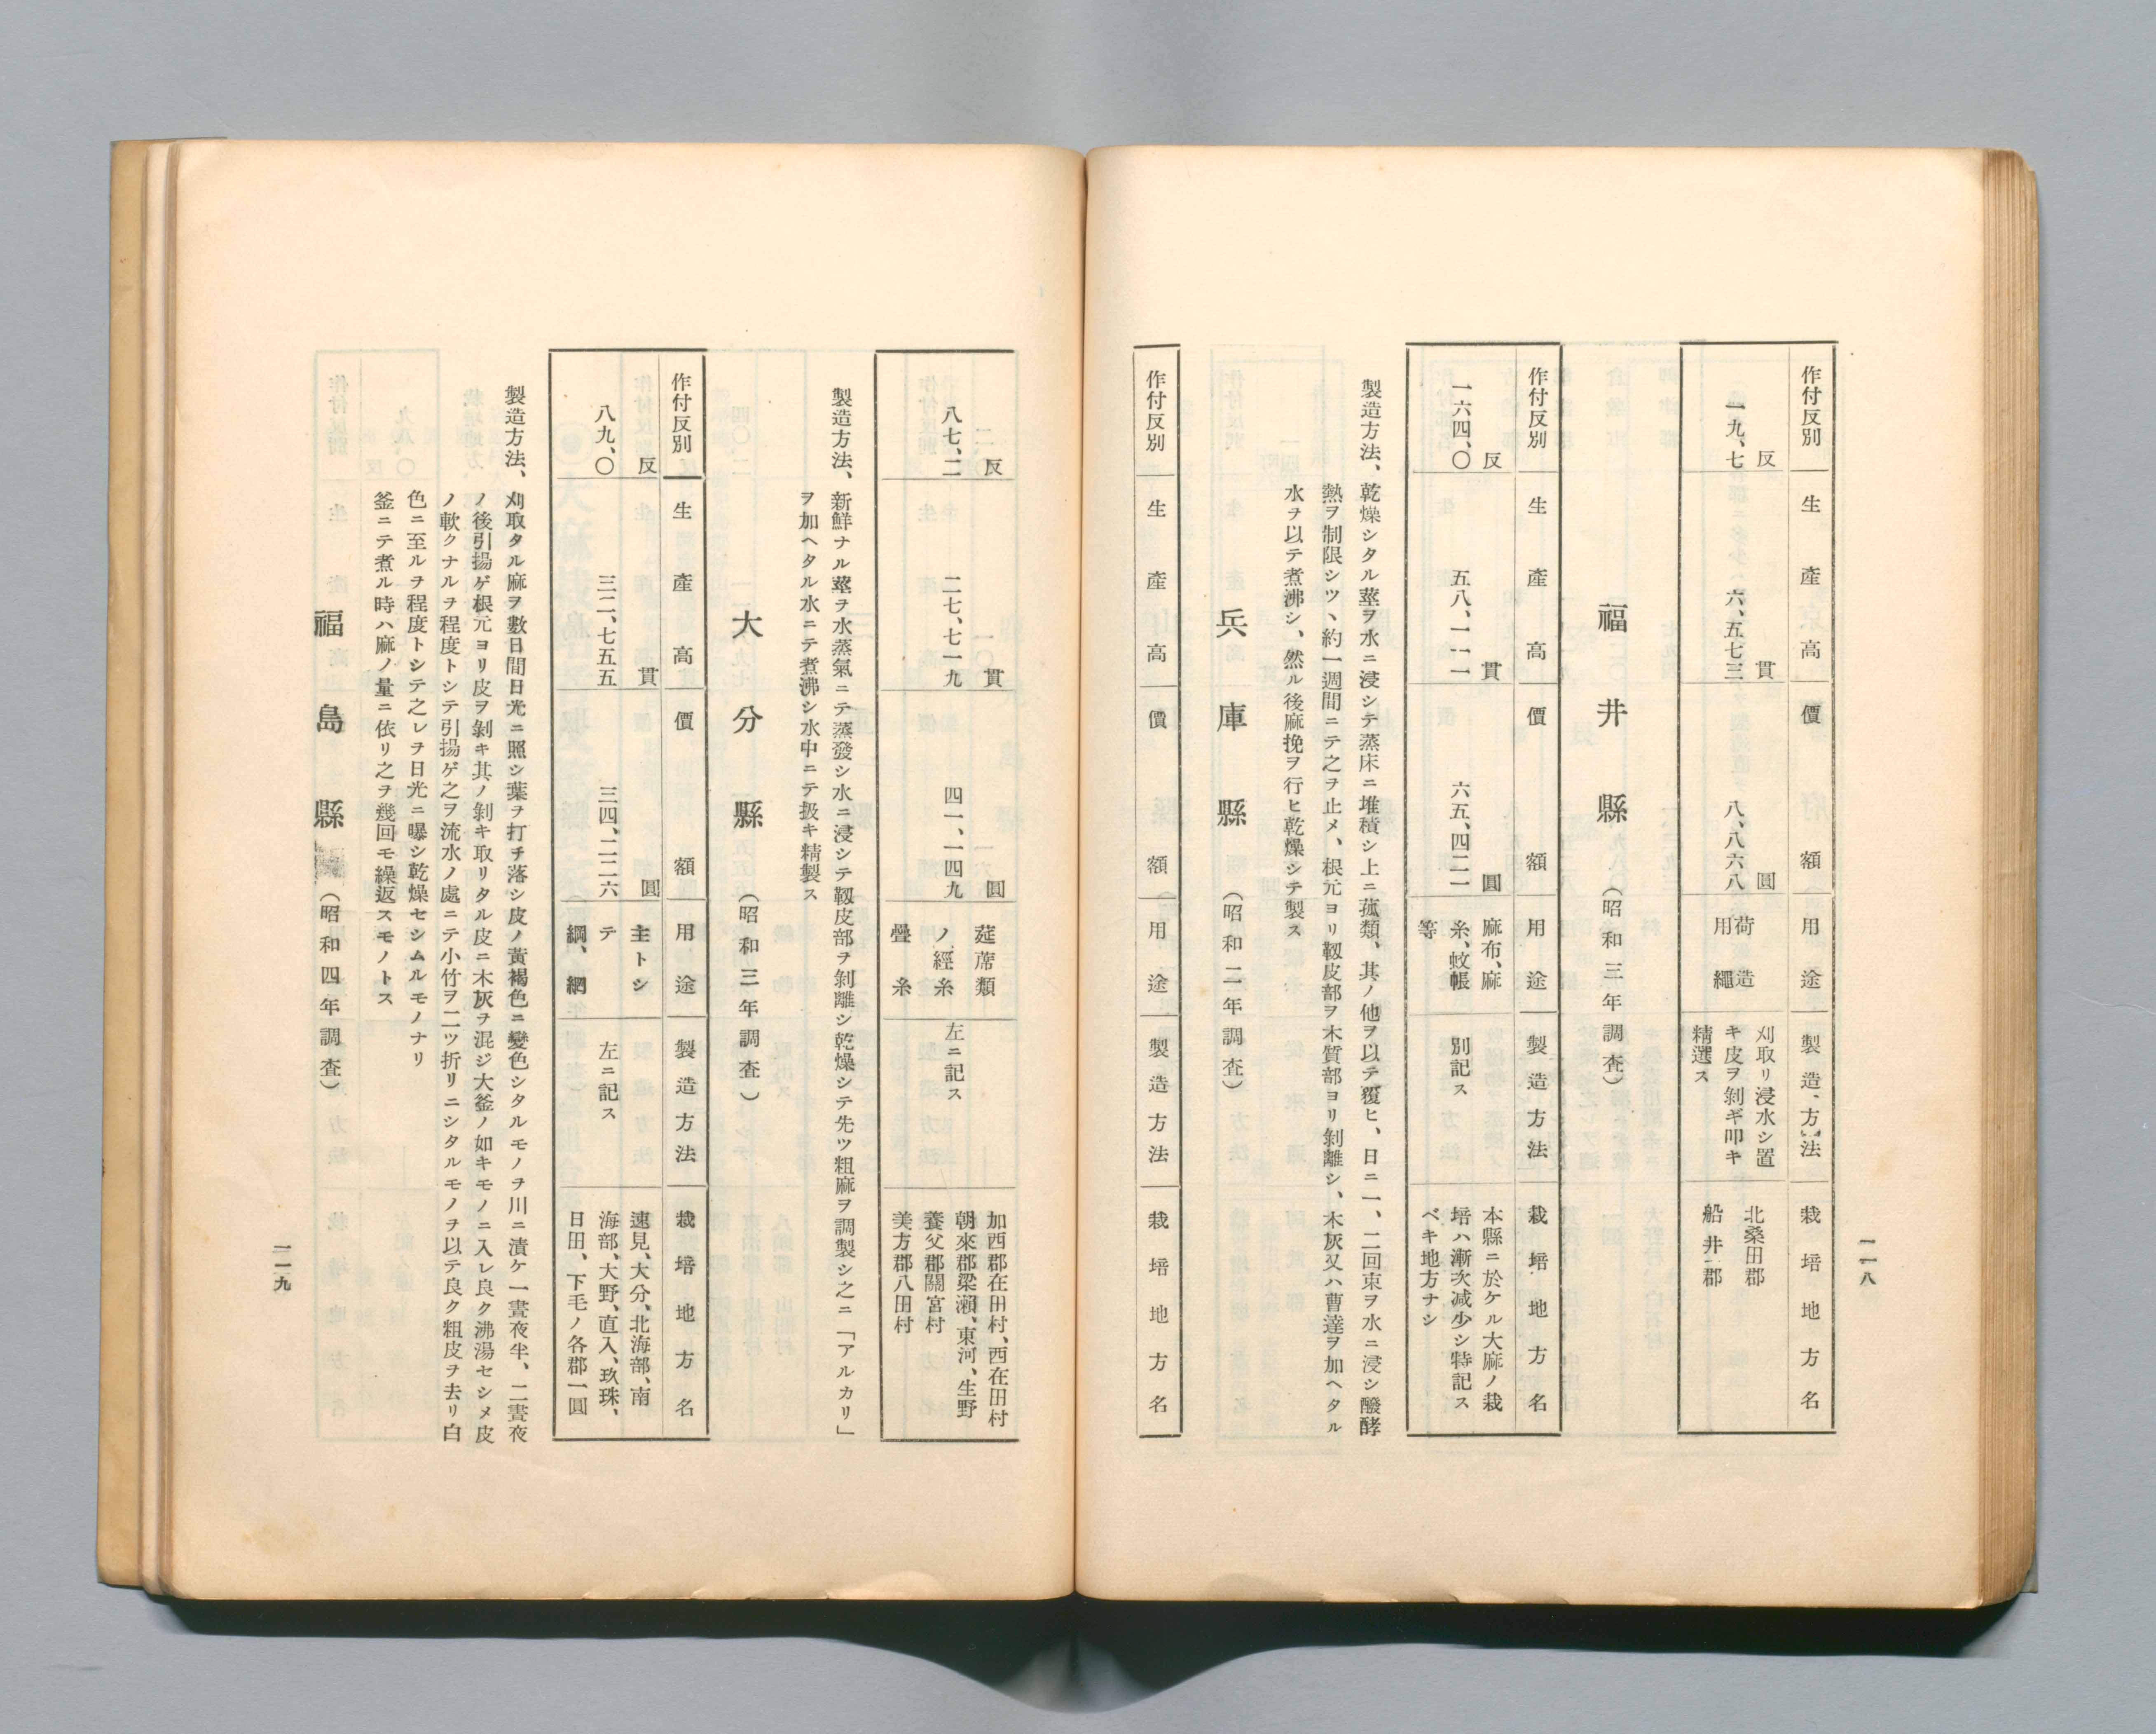 一一八
作付反別
生產高
價額
用途
製造方法
栽培地方名
反
一九、七
貫
六、五七三
圓
八、八六八
荷造
用繩
刈取リ浸水シ置
キ皮ヲ剝ギ叩キ
精選ス
北桑田郡
船井郡
福井縣（昭和三年調査）
作付反別
生產高
價額
用途
製造方法
栽培地方名
反
一六四、〇
貫
五八、一一一
圓
六五、四二一
麻布、麻
糸、蚊帳
等
別記ス
本縣ニ於ケル大麻ノ栽
培ハ漸次減少シ特記ス
ベキ地方ナシ
製造方法、乾燥シタル莖ヲ水ニ浸シテ蒸床ニ堆積シ上ニ菰類、其ノ他ヲ以テ覆ヒ、日ニ一、二回束ヲ水ニ浸シ醱酵
熱ヲ制限シツヽ約一週間ニテ之ヲ止メ、根元ヨリ靱皮部ヲ木質部ヨリ剝離シ、木灰又ハ曹達ヲ加ヘタル
水ヲ以テ煮沸シ、然ル後麻挽ヲ行ヒ乾燥シテ製ス
兵庫縣（昭和二年調査）
作付反別
生產高
價額
用途
製造方法
栽培地方名
反
八七、二
貫
二七、七一九
圓
四一、一四九
莚蓆類
ノ經糸
疊糸
左ニ記ス
加西郡在田村、西在田村
朝來郡梁瀨、東河、生野
養父郡關宮村
美方郡八田村
製造方法、新鮮ナル莖ヲ水蒸氣ニテ蒸發シ水ニ浸シテ靱皮部ヲ剝離シ乾燥シテ先ツ粗麻ヲ調製シ之ニ「アルカリ」
ヲ加ヘタル水ニテ煮沸シ水中ニテ扱キ精製ス
大分縣（昭和三年調査）
作付反別
生產高
價額
用途
製造方法
栽培地方名
反
八九、〇
貫
三二、七五五
圓
三四、二二六
主トシ
テ
綱、網
左ニ記ス
速見、大分、北海部、南
海部、大野、直入、玖珠、
日田、下毛ノ各郡一圓
製造方法、刈取タル麻ヲ數日間日光ニ照シ葉ヲ打チ落シ皮ノ黃褐色ニ變色シタルモノヲ川ニ漬ケ一晝夜半、二晝夜
ノ後引揚ゲ根元ヨリ皮ヲ剝キ其ノ剝キ取リタル皮ニ木灰ヲ混ジ大釜ノ如キモノニ入レ良ク沸湯セシメ皮
ノ軟クナルヲ程度トシテ引揚ゲ之ヲ流水ノ處ニテ小竹ヲ二ツ折リニシタルモノヲ以テ良ク粗皮ヲ去リ白
色ニ至ルヲ程度トシテ之レヲ日光ニ曝シ乾燥セシムルモノナリ
釜ニテ煮ル時ハ麻ノ量ニ依リ之ヲ幾回モ繰返スモノトス
福島縣（昭和四年調査）
一一九